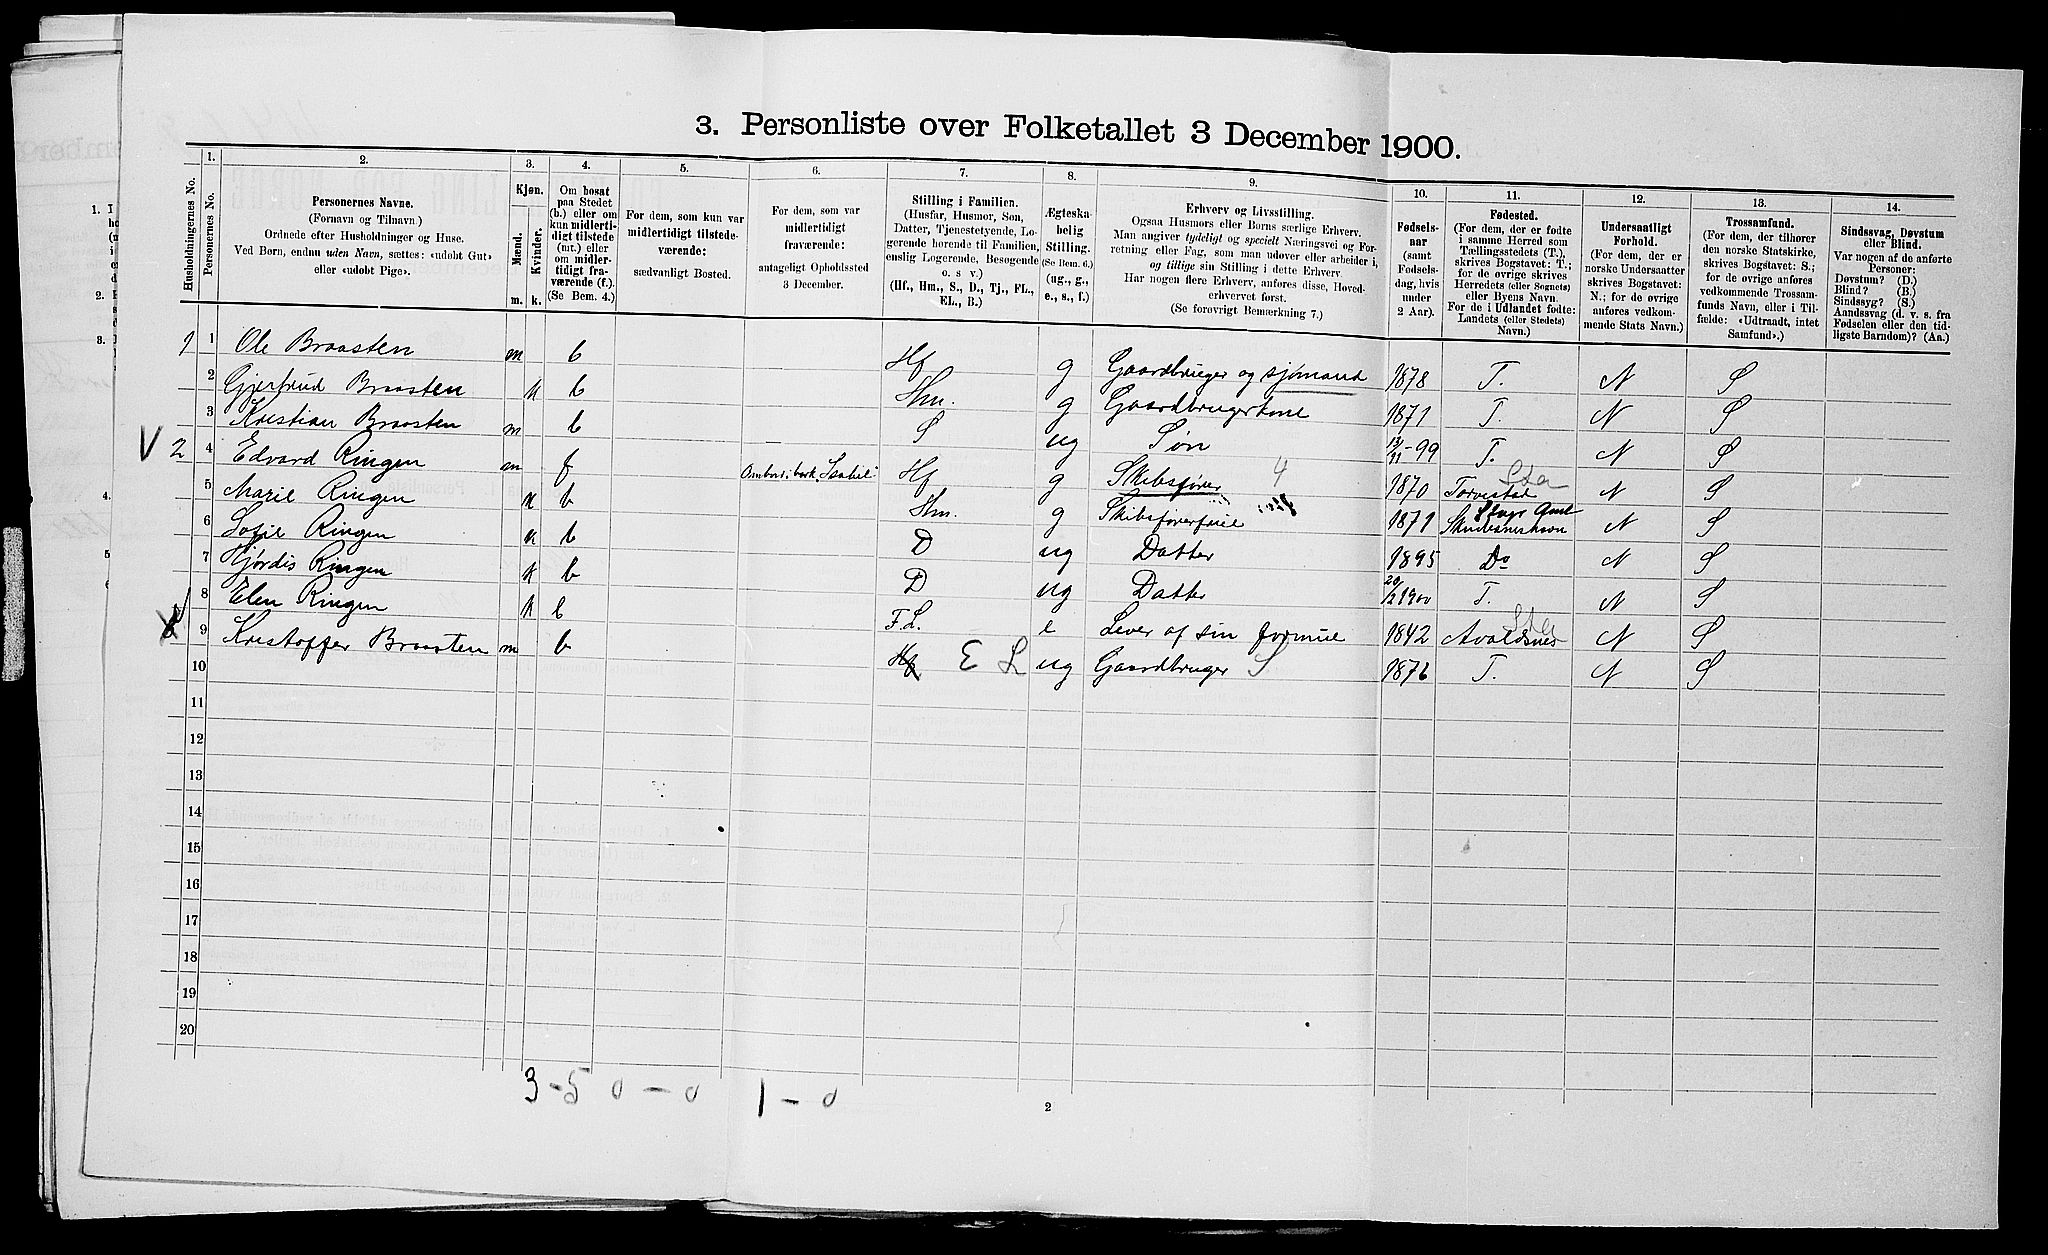 3. Personliste over Folketallet 3 December 1900.
Husholdningernes No.
1. Personernes No.
2. Personernes Navne. (Fornavn og Tilnavn.) Ordnede efter Husholdninger og Huse. Ved Børn, endnu uden Navn, sættes: «udøbt Gut» eller «udøbt Pige».
3. Kjøn. Mænd. m. Kvinder. k.
4. Om bosat paa Stedet (b.) eller om kun midlertidigt tilstede (mt.) eller om midlertidigt fraværende (f.). (Se Bem. 4.)
5. For dem, som kun var midlertidigt tilstedeværende: sædvanligt Bosted.
6. For dem, som var midlertidigt fraværende: antageligt Opholdssted 3 December.
7. Stilling i Familien. (Husfar, Husmor, Søn, Datter, Tjenestetyende, Logerende hørende til Familien, enslig Logerende, Besøgende o. s. v.) (Hf., Hm., S., D., Tj., FL., EL., B.)
8. Ægteskabelig Stilling. (Se Bem. 6.) (ug., g., e., s., f.)
9. Erhverv og Livsstilling. Ogsaa Husmors eller Børns særlige Erhverv. Man angiver tydeligt og specielt Næringsvei og Forretning eller Fag, som man udøver eller arbeider i, og tillige sin Stilling i dette Erhverv. Har nogen flere Erhverv, anføres disse, Hovederhvervet først. (Se forøvrigt Bemærkning 7.)
10. Fødselsaar (samt Fødselsdag, hvis under 2 Aar).
11. Fødested. (For dem, der er fødte i samme Herred som Tællingsstedets (T.), skrives Bogstavet: T.; for de øvrige skrives Herredets (eller Sognets) eller Byens Navn. For de i Udlandet fødte: Landets (eller Stedets) Navn.)
12. Undersaatligt Forhold. (For dem, der er norske Undersaatter skrives Bogstavet: N.; for de øvrige anføres vedkommende Stats Navn.)
13. Trossamfund. (For dem, der tilhører den norske Statskirke, skrives Bogstavet: S.; for de øvrige anføres vedkommende Trossamfunds Navn, eller i Tilfælde: «Udtraadt, intet Samfund».)
14. Sindssvag, Døvstum eller Blind. Var nogen af de anførte Personer: Døvstum? (D.) Blind? (B.) Sindssyg? (S.) Aandssvag (d. v. s. fra Fødselen eller den tidligste Barndom)? (Aa.)
1 1 Ole Braasten m b Hf g Gaardbruger og sjømand 1878 T. N S
2 Gjertrud Braasten k b Hm. g Gaardbrugerkone 1871 T. N S
3 Kristian Braasten m b S ug Søn 13/11-99 T. N S
V 2 4 Edvard Ringen m f Ombord i bark "Isabel" Hf g Skibsfører 4 1870 Torvestad Sta N S
5 Marie Ringen k b Hm. g Skibsførerfrue 1871 Skudesneshavn N S
6 Sofie Ringen k b D ug Datter 1895 Do N S
7 Hjørdis Ringen k b D ug Datter 20/2 1900 T. N S
8 Elen Ringen k b F.L. e Lever af sin formue 1842 Avaldsnes Sta N S
9 Kristoffer Braasten m b Hf E L ug Gaardbruger S 1876 T. N S
10
11
12
13
14
15
16
17
18
19
20
3-5 0-0 1-0
2